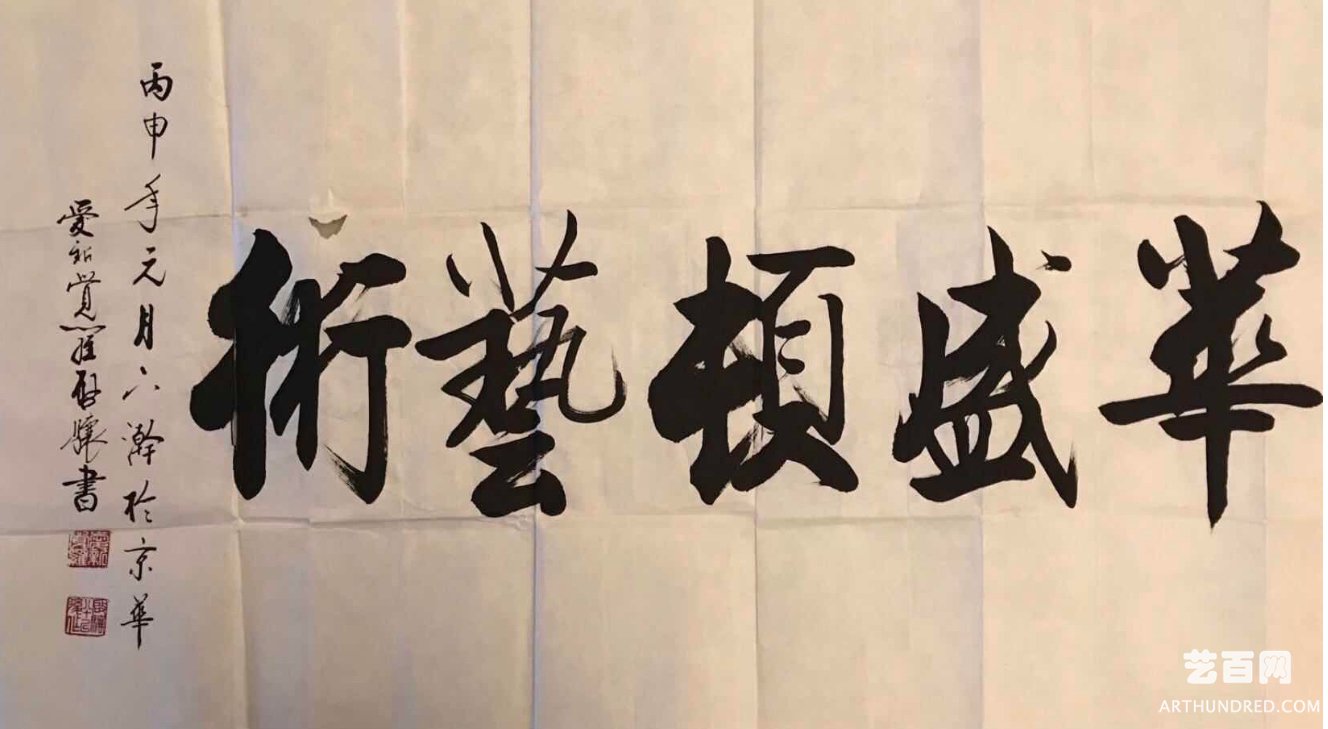 華盛頓藝術
丙申年元月下澣於京華
愛新覺羅啓驤書
艺百网
ARTHUNDRED.COM